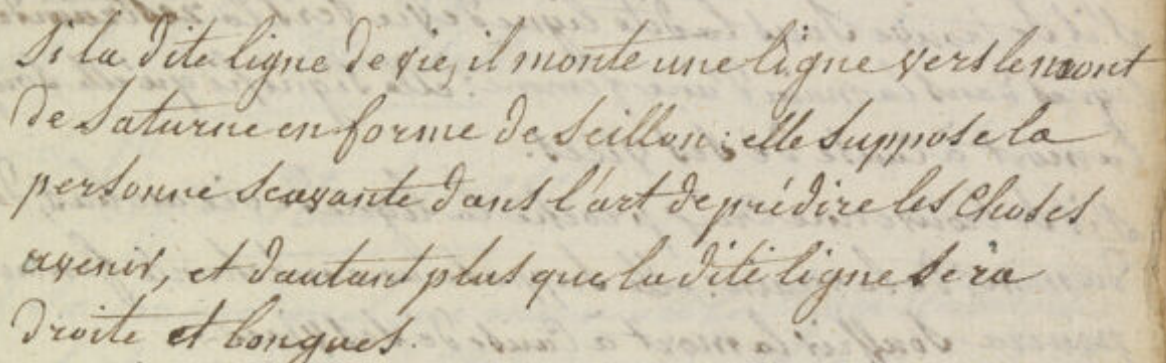 Si la dite ligne de vie, il monte une ligne vers le mont
de Saturne en forme de Seillon; elle Suppose la
personne Scavante dans l'art de prédire les Choses
avenir, et dautant plus que la dite ligne Sera
droite et longues.